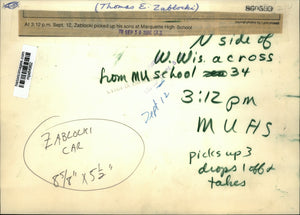 (Thomas E. Zablocki)
At 3:12 p.m. Sept. 12, Zablocki picked up his sons at Marquette High School
N side of
W. Wis. across
from MU school 34
3:12 pm
MUHS
Sept 12
picks up 3
drops 1 off &
takes
ZABLOCKI
CAR
8 5/8" x 5 1/2"